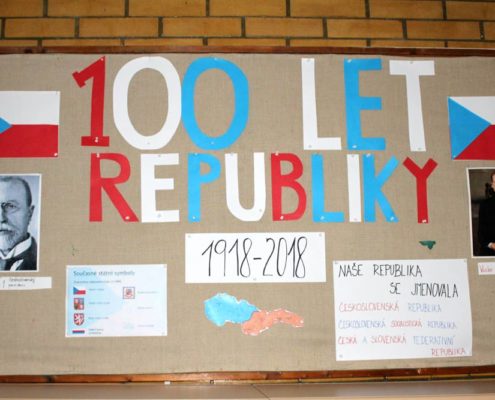 100 LET
REPUBLIKY
1918-2018
Současné státní symboly
NAŠE REPUBLIKA
SE JMENOVALA
ČESKOSLOVENSKÁ REPUBLIKA
ČESKOSLOVENSKÁ SOCIALISTICKÁ REPUBLIKA
ČESKÁ A SLOVENSKÁ FEDERATIVNÍ
REPUBLIKA